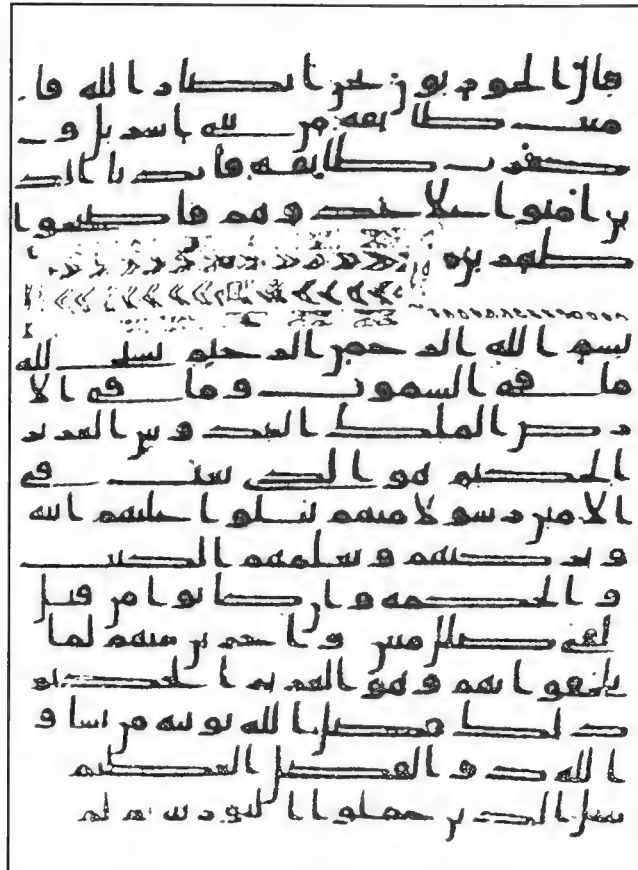 قال الحوريون نحن انصار الله فا
منت طايفة من بني اسريل و
كفرت طايفة فايدنا الذ
ين امنوا على عدوهم فاصبحوا
ظهرين
بسم الله الرحمن الرحيم يسبح لله
ما في السموت وما في الا
رض الملك القدوس العزيز
الحكيم هو الذي بعث في
الامين رسولا منهم يتلوا عليهم ايته
ويزكيهم ويعلمهم الكتب
والحكمة وان كانوا من قبل
لفي ضلل مبين واخرين منهم لما
يلحقوا بهم وهو العزيز الحكيم
ذلك فضل الله يوتيه من يشا و
الله ذو الفضل العظيم
مثل الذين حملوا التورية ثم لم